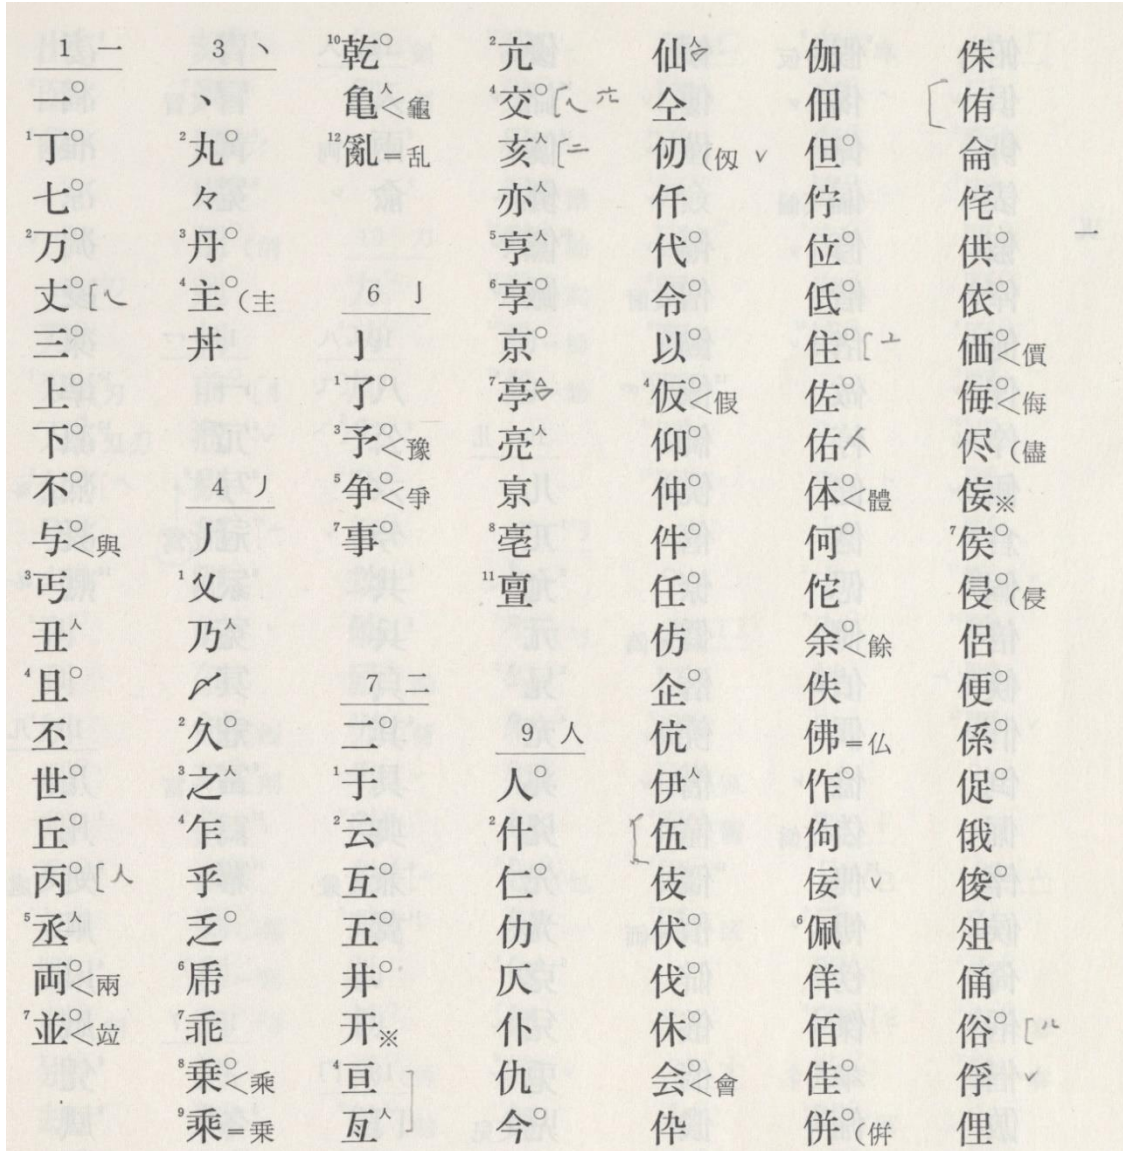 1 一
一○
1丁○
七○
2万○
丈○
三○
上○
下○
不○
与○<與
3丐
丑人
4且○
丕
世○
丘○
丙○[人
5丞人
両○<兩
7並○<竝
3 丶
丶
2丸○
々
3丹○
4主○(主
丼
4 丿
丿
1乂
乃人
〆
2久○
3之人
4乍
乎
乏○
6乕
7乖
8乗○<乘
9乘=乗
10乾○
亀人<龜
12亂=乱
6 亅
亅
1了○
3予○<豫
5争○<爭
7事○
7 二
二○
1于
2云
互○
五○
井○
开※
4亘
亙人
2亢
4交○[乀 六
亥人[二
亦人
5亨人
6享○
京○
7亭○
亮人
亰
8亳
11亶
9 人
人○
2什
仁○
仂
仄
仆
仇
今○
仙人
仝
仞(仭
仟
代○
令○
以○
4仮○<假
仰○
仲○
件○
任○
仿
企○
伉
伊人
伍
伎
伏○
伐○
休○
会○<會
伜
伽
佃
但○
佇
位○
低○
住○[亠
佐○
佑人
体○<體
何○
佗
余○<餘
佚
佛=仏
作○
佝
佞
6佩
佯
佰
佳○
併○(倂
侏
侑
侖
侘
供○
依○
価○<價
侮○<侮
侭(儘
侫※
7侯○
侵○(侵
侶
便○
係○
促○
俄
俊○
俎
俑
俗○[八
俘
俚